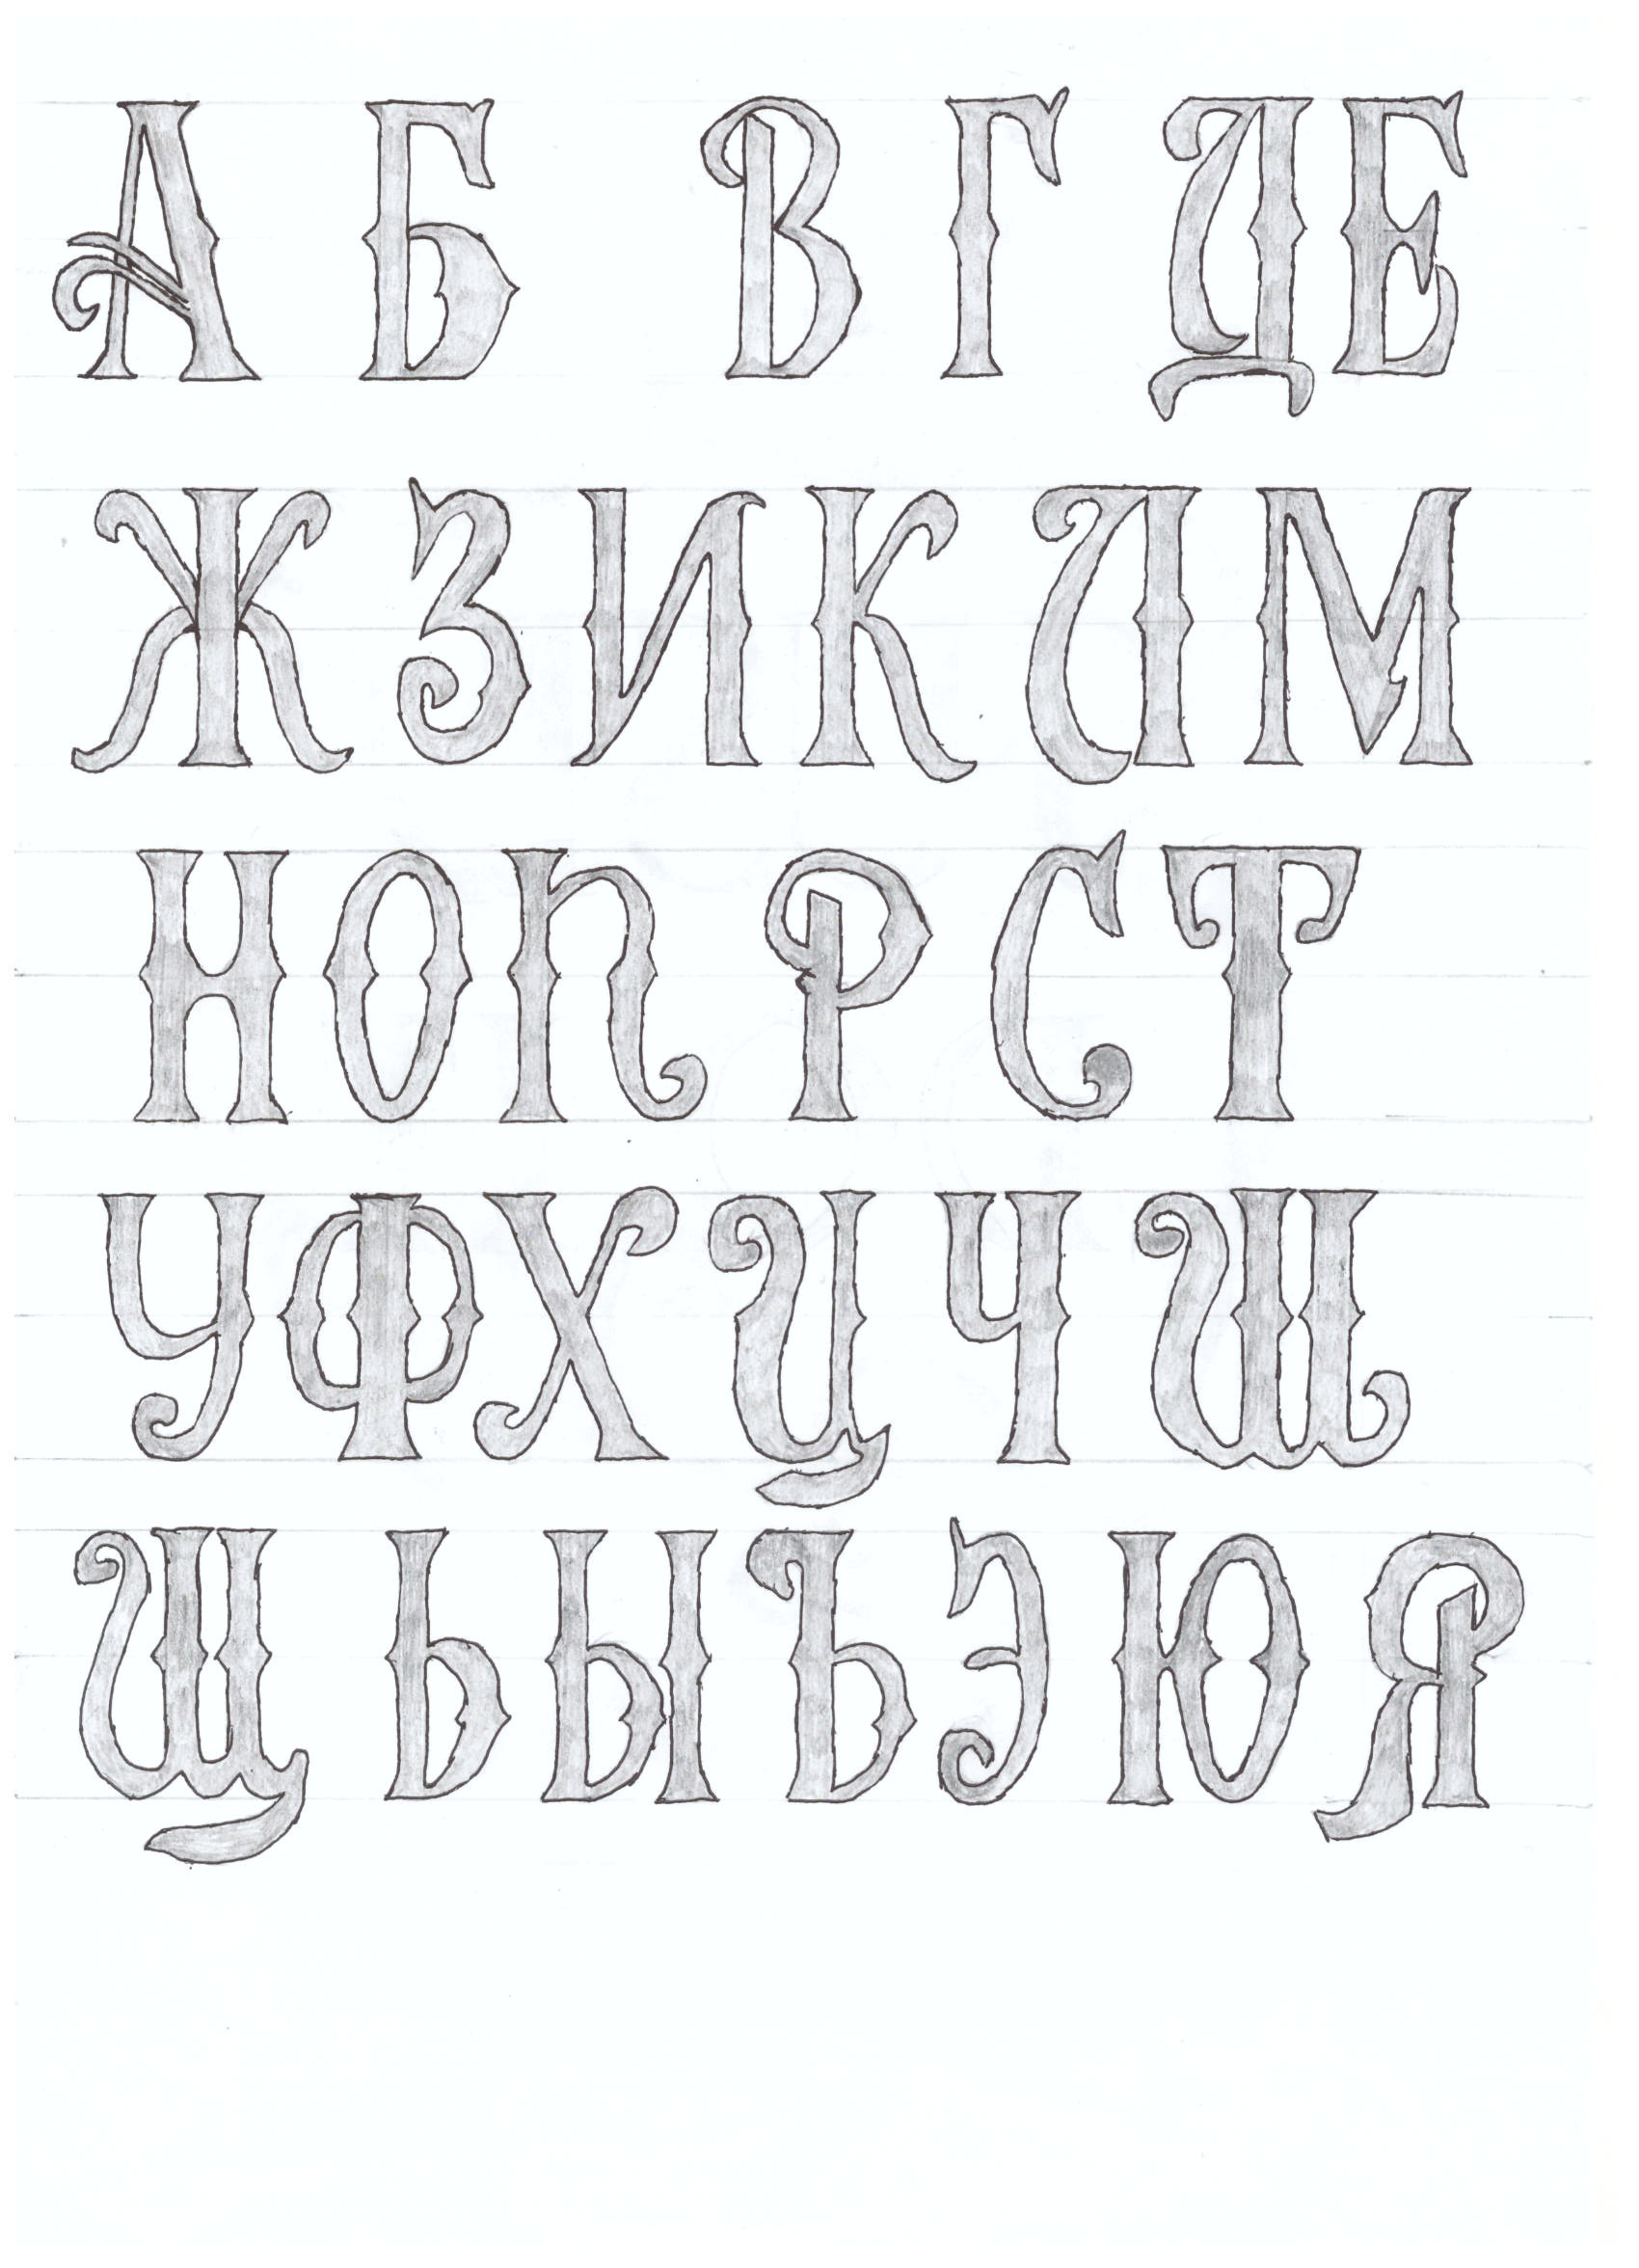 А Б В Г Д Е
Ж З И К Л М
Н О П Р С Т
У Ф Х Ц Ч Ш
Щ Ь Ы Ъ Э Ю Я